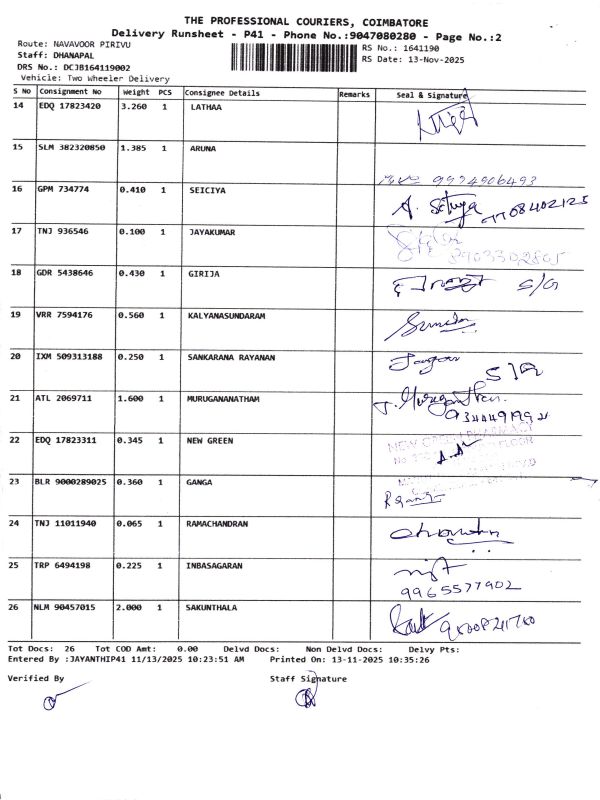 THE PROFESSIONAL COURIERS, COIMBATORE
Delivery Runsheet - P41 - Phone No.:9047080280 - Page No.:2
Route: NAVAVOOR PIRIVU
RS No.: 1641190
Staff: DHANAPAL
RS Date: 13-Nov-2025
DRS No.: DCJB164119002
Vehicle: Two Wheeler Delivery
S No Consignment No Weight PCS Consignee Details Remarks Seal & Signature
14 EDQ 17823420 3.260 1 LATHAA
15 SLM 382320850 1.385 1 ARUNA
9994906493
16 GPM 734774 0.410 1 SEICIYA
17 TNJ 936546 0.100 1 JAYAKUMAR
18 GDR 5438646 0.430 1 GIRIJA
S/G
19 VRR 7594176 0.560 1 KALYANASUNDARAM
20 IXM 509313188 0.250 1 SANKARANA RAYANAN
21 ATL 2069711 1.600 1 MURUGANANATHAM
22 EDQ 17823311 0.345 1 NEW GREEN
23 BLR 9000289025 0.360 1 GANGA
24 TNJ 11011940 0.065 1 RAMACHANDRAN
25 TRP 6494198 0.225 1 INBASAGARAN
9965577902
26 NLM 90457015 2.000 1 SAKUNTHALA
Tot Docs: 26 Tot COD Amt: 0.00 Delvd Docs: Non Delvd Docs: Delvy Pts:
Entered By :JAYANTHIP41 11/13/2025 10:23:51 AM Printed On: 13-11-2025 10:35:26
Verified By Staff Signature